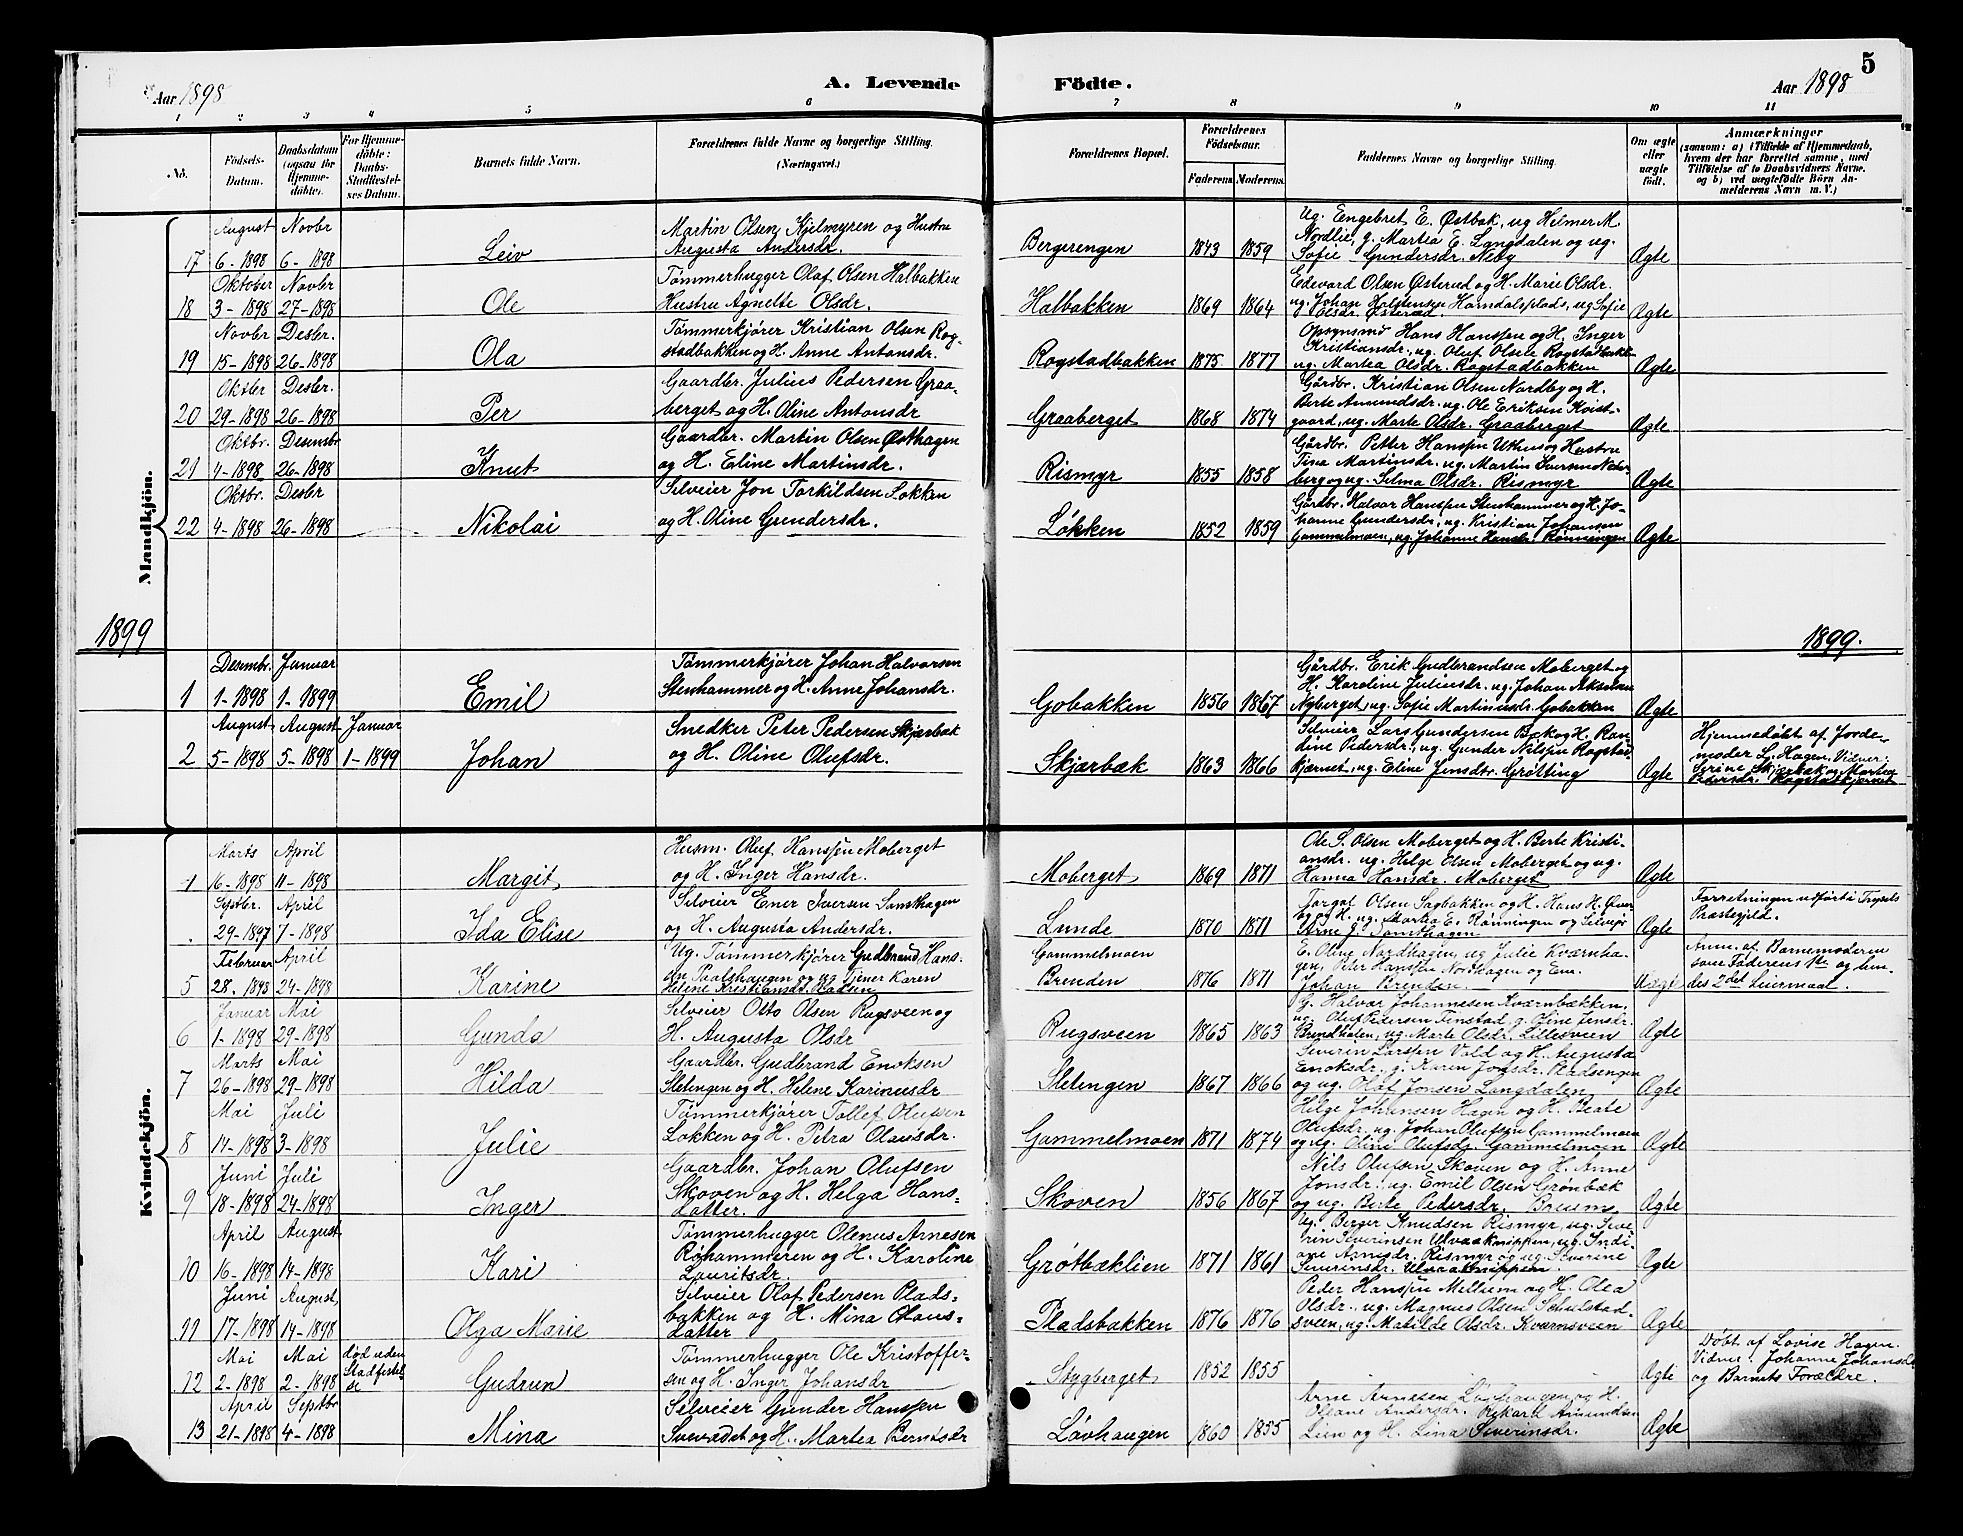 5
Aar 1898
A. Levende
Födte.
Aar 1898
1 2 3 4 5 6 7 8 9 10 11
No.
Födsels-Datum.
Daabsdatum (ogsaa for Hjemmedöbte).
For Hjemmedöbte: Daabs-Stadfæstelses Datum.
Barnets fulde Navn.
Forældrenes fulde Navne og borgerlige Stilling. (Næringsvei.)
Forældrenes Bopæl.
Forældrenes Födselsaar.
Faderens. Moderens.
Faddernes Navne og borgerlige Stilling.
Om ægte eller uægte födt.
Anmærkninger
(saasom: a) i Tilfælde af Hjemmedaab, hvem der har forrettet samme, med Tilföielse af to Daabsvidners Navne, og b) ved uægtefödte Börn Anmelderens Navn m. V.)
Mandkjön.
17 August 6- 1898 Novbr 6- 1898 Leiv Martin Olsen Kjelmyren og Hustru Augusta Andersdr. Bergerengen 1843 1859 Ug. Engebret E. Østbak, ug Helmer M. Nordlie, g. Martea E. Langdalen og ug. Sofie Gundersdr. Neby Ægte
18 Oktober 3- 1898 Novbr 27- 1898 Ole Tømmerhugger Olaf Olsen Halbakken Hustru Agnette Olsdr. Halbakken 1869 1864 Edevard Olsen Østerud og H. Marie Olsdr. ug. Johan Halstensen Homdalsplads, ug Sofie Olsdr. Østerud Ægte
19 Novbr 15- 1898 Desbr. 26- 1898 Ola Tømmerkjører Kristian Olsen Rogstadbakken og H. Anne Antonsdr. Rogstadbakken 1875 1877 Opsynsmd Hans Hanssen og H. Inger Kristiansdr., ug. Oluf Olsen Rogstadbakk ug. Martea Olsdr. Rogstadbakken Ægte
20 Oktbr 29- 1898 Desbr. 26- 1898 Per Gaardbr. Julius Pedersen Graaberget og H. Oline Antonsdr Graaberget 1868 1874 Gårdbr. Kristian Olsen Nordby og H. Berte Amundsdr. ug. Ole Eriksen Kvistgaard, ug. Marte Olsdr. Graaberget Ægte
21 Oktbr. 4- 1898 Desembr 26- 1898 Knut Gaardbr. Martin Olsen Østhagen og H. Eline Martinsdr. Rismyr 1855 1858 Gårdbr. Petter Hanssen Uthus og Hustru Tina Martinsdr. ug. Martin Iversen Nederberg og ug. Selma Olsdr. Rismyr Ægte
22 Oktbr. 4- 1898 Desbr 26- 1898 Nikolai Selveier Jon Torkildsen Løkken og H. Oline Gundersdr. Løkken 1852 1859 Gårdbr. Halvor Hanssen Stenhammer og H. Johanne Gundersdr., ug. Kristian Johansen Gammelmoen, ug. Johanne Hansdr. Rønningen Ægte
1899
1899.
1 Desembr. 1- 1898 Januar 1- 1899 Emil Tømmerkjører Johan Halvorsen Stenhammer og H. Anne Johansdr. Gobakken 1856 1867 Gårdbr. Erik Gudbrandsen Moberget og H. Karoline Juliusdr. ug. Johan Akselsen Nyberget, ug. Sofie Martinusdr. Gobakken Ægte
2 August 5- 1898 August 5- 1898 Januar 1- 1899 Johan Snedker Peter Pedersen Skjærbæk og H. Oline Olufsdr. Skjærbæk 1863 1866 Selveier Lars Gundersen Bæk og H. Randine Pedersdr., ug. Gunder Nilssen Rogstadkjærnet, ug. Eline Jensdtr. Grøtting Ægte Hjemmedøbt af Jordemoder L. Hagen. Vidner: Serine Skjærbæk og Martea Pedersdr. Rogstadkjærnet
Kvindekjön.
1 Marts 16- 1898 April 11- 1898 Margit Husm. Oluf Hanssen Moberget og H. Inger Hansdr. Moberget 1869 1871 Ole S. Olsen Moberget og H. Berte Kristiansdr. ug. Helge Olsen Moberget og ug. Hanna Hansdr. Moberget Ægte
. Septbr. 29- 1897 April 7- 1898 Ida Elise Selveier Ener Iversen Lomthagen og H. Augusta Andersdr. Lunde 1870 1871 Torgal Olsen Sagbakken og H. Hans H. og H. ug. Martea E. Rønningen og Arne Ægte Forretningen udført i Trysils Præstegjeld.
5 Februar 28- 1898 April 24- 1898 Karine Ug. Tømmerkjører Gudbrand Hansen Paalshaugen og ug Tjener Karen Helene Kristiansdr. Pladsen Gammelmoen Brenden 1876 1871 E. Oline Nordhagen, ug Julie Kværnhagen, Peter Hanssen Nordhagen og Em. Johan Brenden Uægte Anm. af Barnemoderen som Faderens 1ste og hendes 2det Leiermaal.
6 Januar 1- 1898 Mai 29- 1898 Gunda Selveier Otto Olsen Rugsveen og H. Augusta Olsdr Rugsveen 1865 1863 G. Halvor Johannesen Kværnbækken, ug. Oluf Pedersen Finstad, g. Oline Jensdr. Brendhalen, ug. Marte Olsdr. Lillesveen Ægte
7 Marts 26- 1898 Mai 29- 1898 Hilda Gaardbr. Gudbrand Enoksen Sletengen og H. Helene Karinusdr Sletengen 1867 1866 Severin Larssen Vold og H. Augusta Enoksdr., g. Karen Jonsdr. Pladsengen og ug. Olaf Jonsen Langdalen Ægte
8 Mai 14- 1898 Juli 3- 1898 Julie Tømmerkjører Tollef Olufsen Løkken og H. Petra Olausdr. Gammelmoen 1871 1874 Helge Johansen Hagen og H. Beate Olufsdr. ug. Johan Olufsen Gammelmoen og ug. Oline Olufsdr. Gammelmoen Ægte
9 Juni 18- 1898 Juli 24- 1898 Inger Gaardbr. Johan Olufsen Skoven og H. Helga Hansdatter. Skoven 1856 1867 Nils Olufsen Skoven og H. Anne Jonsdr., ug. Emil Olsen Grønbæk og ug. Berte Pedersdr. Ægte
10 April 16- 1898 August 14- 1898 Kari Tømmerhugger Olenus Arnesen Røhammeren og H. Karoline Lauritsdr. Grøtbæklien 1871 1861 Ug. Berger Knudsen Rismyr, ug. Severin Severinsen Ulvaaknippen, ug. Indiane Arnesdr. Rismyr og ug. Severine Severinsdr. Ulvaaknippen. Ægte
11 Juni 17- 1898 August 14- 1898 Olga Marie Selveier Olaf Pedersen Pladsbakken og H. Mina Olausdatter Pladsbakken 1876 1876 Peder Hanssen Mellem og H. Olea Olsdr., ug. Magnus Olsen Schulstadsveen, ug. Matilde Olsdr. Kværnsveen Ægte
12 Mai 2- 1898 Mai 2- 1898 død uden Stadfestelse Gudrun Tømmerhugger Ole Kristoffersen og H. Inger Johansdr Stygberget 1852 1855 Ægte Døbt af Lovise Hagen. Vidner: Johanne Johansdr og Barnets Forældre.
13 April 21- 1898 Septbr 4- 1898 Mina Selveier Gunder Hanssen Svevadet og H. Martea Berntsdr Løvhaugen 1860 1855 Arne Arnesen Løvhaugen og H. Oleane Andersdr. Rikard Amundsen Lien og H. Lina Severinsdr. Ægte